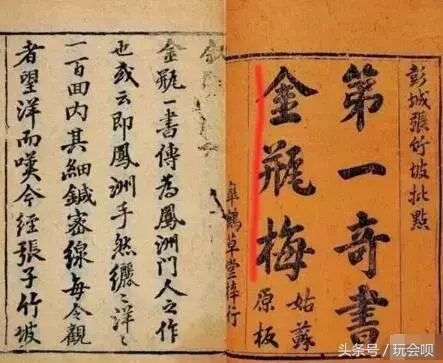 彭城張竹坡批點
第一奇書
金瓶梅
姑蘇
原板
皐鶴草堂梓行
金瓶一書傳為鳳洲門人之作
也或云即鳳洲手然纚〻洋〻
一百囬内其細鍼密線每令觀
者望洋而嘆今經張子竹坡
头条号/玩会呗